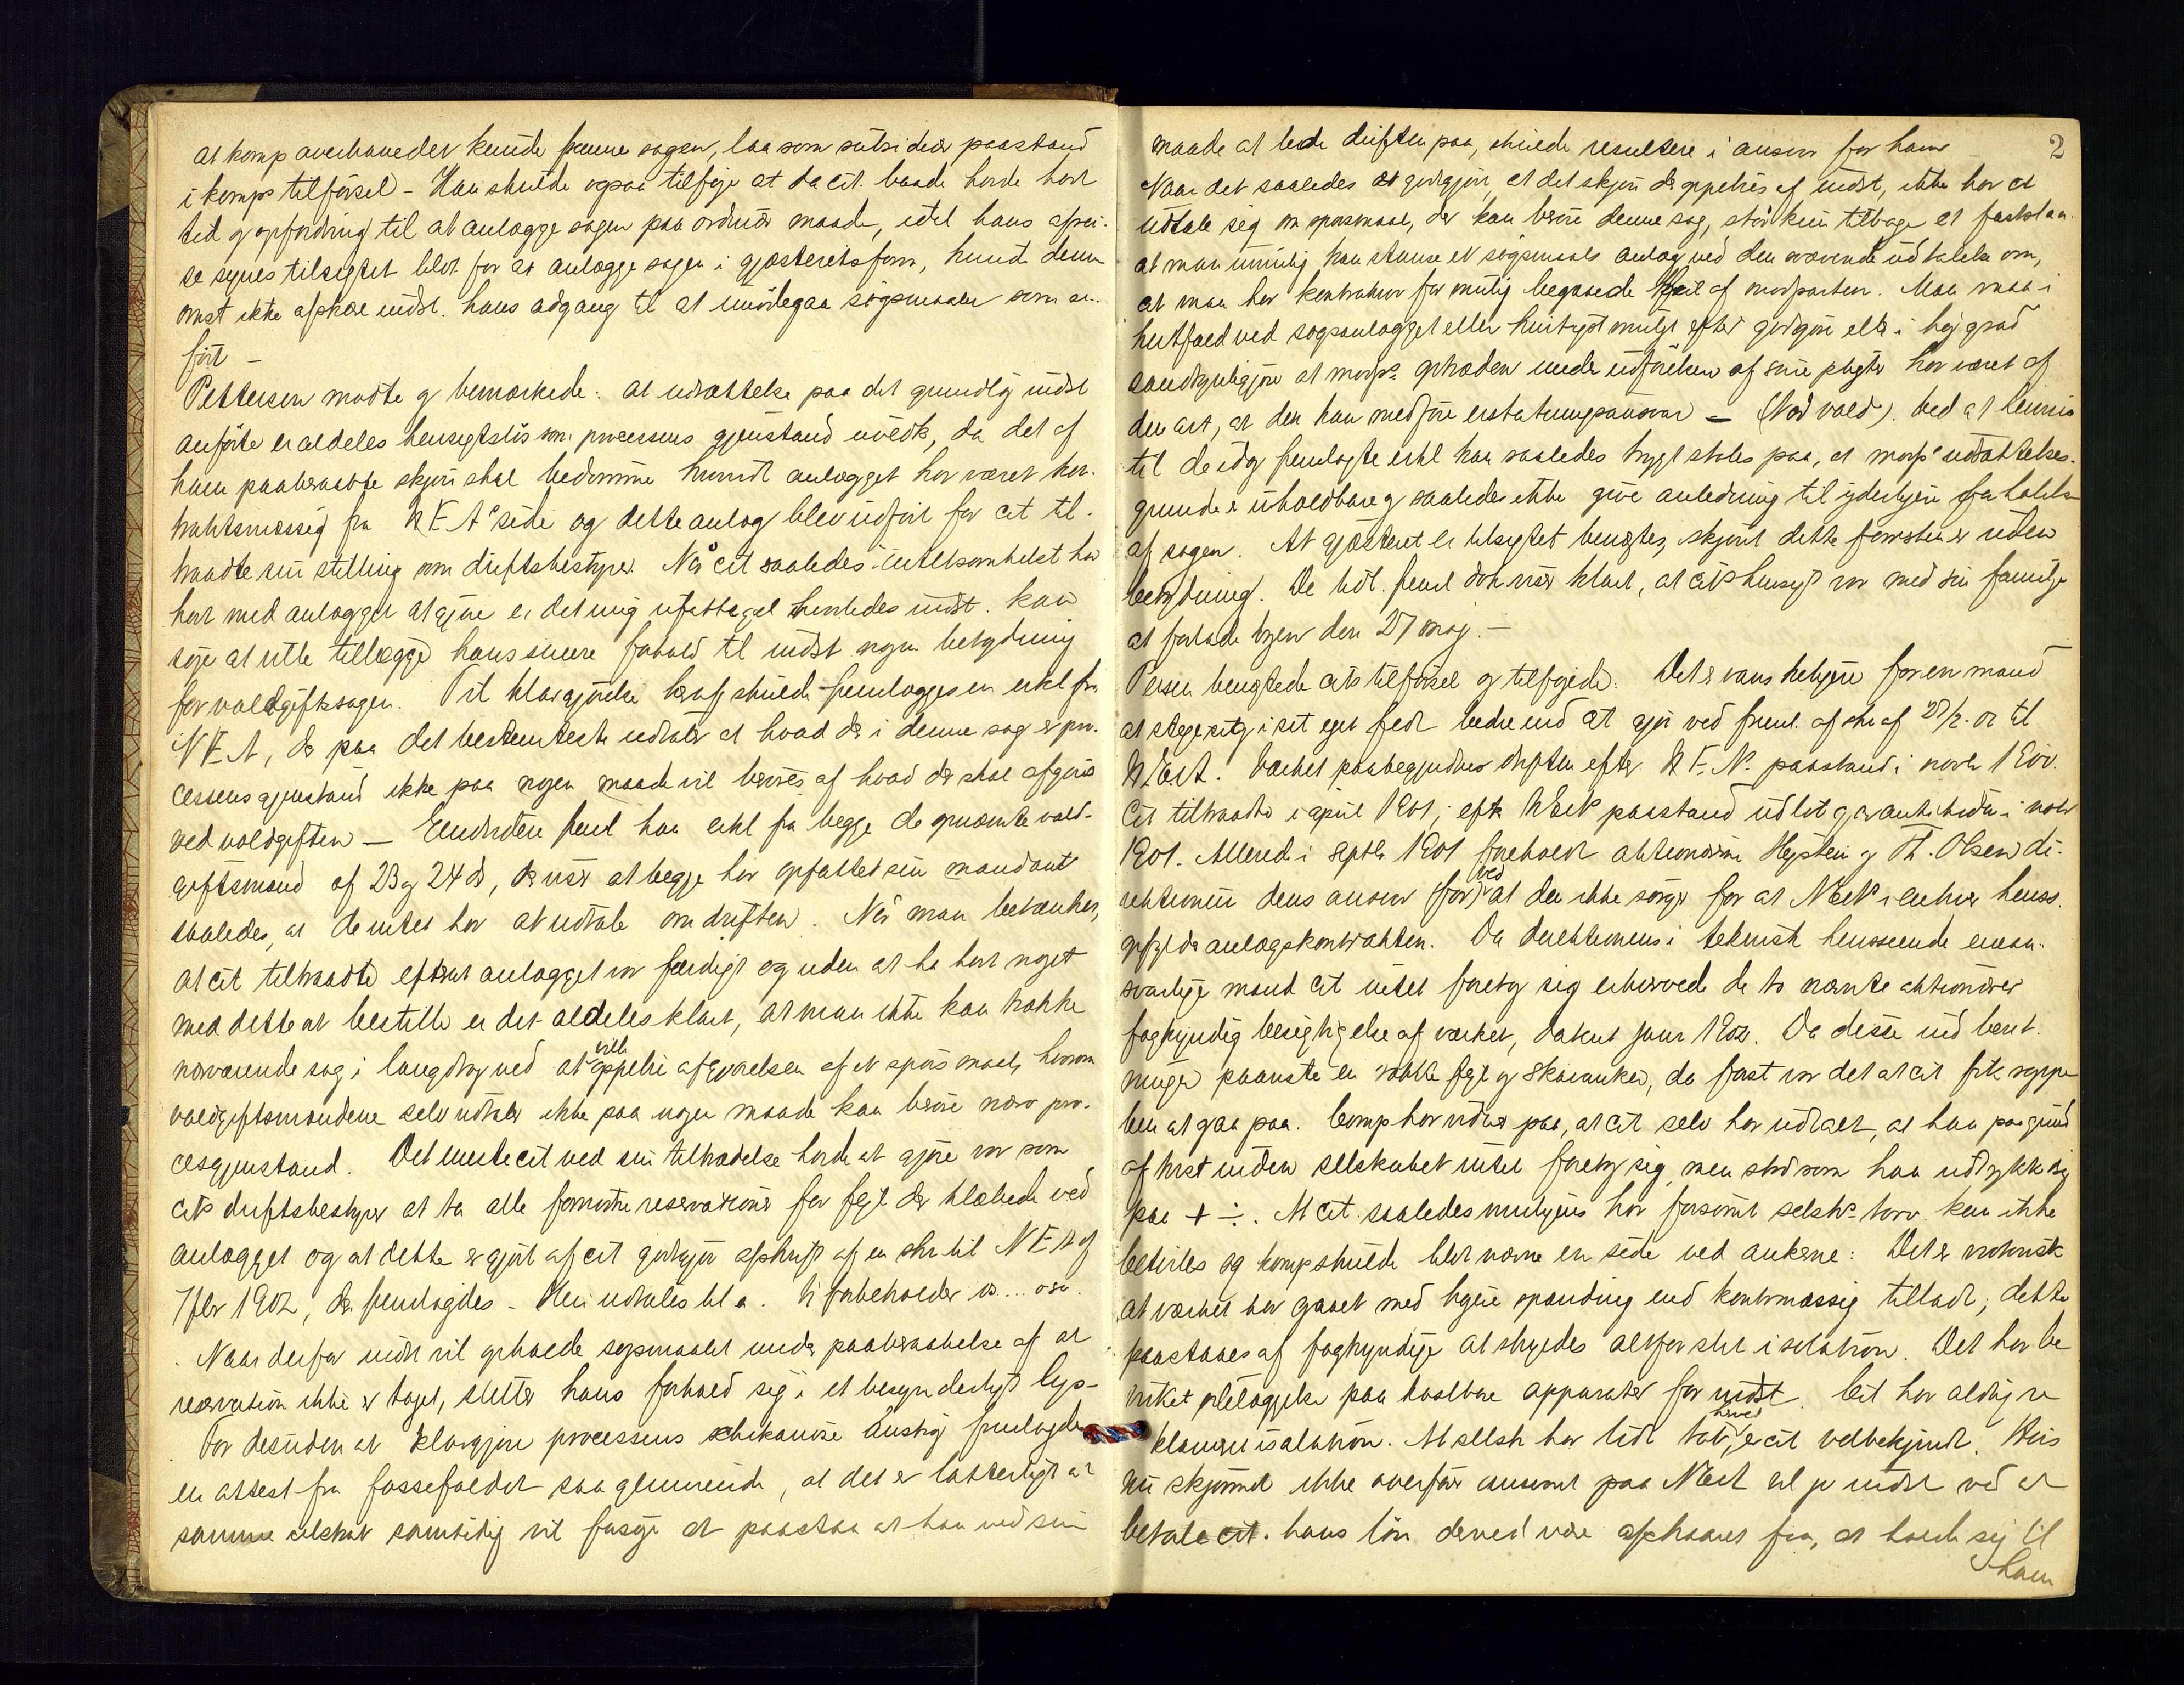 at komp overhovedet kunde fremme sagen, laa som subsidiær paastand
i komps tilførsel - Han skulde ogsaa tilføje at da cit. baade havde havt
tid og opfordring til at anlægge sagen paa ordinær maade, idet hans afrei-
se synes tilsigtet blot for at anlægge sagen i gjæsteretsform, kunde denne
omst ikke afskjære indst. hans adgang til at imødegaa søgsmaalet som an-
ført -
Pettersen mødte og bemærkede: at udsættelse paa det grundlag indst
anførte er aldeles hensigtsløs som processens gjenstand uvedk, da det af
ham paaberaabte skjøn skal bedømme hvorvidt anlægget har været kon-
traktsmæssig fra NEAs side og dette anlæg blev udført før cit til-
traadte sin stilling som driftsbestyrer. Når cit saaledes intetsomhelst har
havt med anlægget at gjøre er det mig ufatteligt hvorledes indst. kan
søge at ville tillægge hans senere forhold til indst nogen betydning
for voldgiftssagen. Til klargjørelse heraf skulde fremlægges en erkl fra
NEA, der paa det bestemteste udtaler at hvad der i denne sag er pro-
cessens gjenstand ikke paa nogen maade vil berøres af hvad der skal afgjøres
ved voldgiften — Endvidere freml han erkl fra begge de opnævnte vold-
giftsmænd af 23 og 24 ds, der viser at begge har opfattet sin mandant
saaledes, at de intet har at udtale om driften. Når man betænker,
at cit tiltraadte efterat anlægget var færdigt og uden at ha havt noget
med dette at bestille er det aldeles klart, at man ikke kan trække
nærværende sag i langdrag ved at ville oppebie afgjørelsen af et spørsmaal, hvorom
voldgiftsmændene selv udtaler ikke paa nogen maade kan berøre nærv pro-
cesgjenstand. Det eneste cit ved sin tiltrædelse havde at gjøre var som
cits driftsbestyrer at ta alle fornødne reservationer for fejl der klæbede ved
anlægget og at dette er gjort af cit godtgjør afskrift af en skr til NEA af
7 febr 1902, der fremlagdes - Heri udtales bl a. Vi forbeholder os ... osv.
Naar derfor indst vil opholde søgsmaalet under paaberaabelse af at
reservation ikke er taget, stiller hans forhold sig i et besynderligt lys -
For desuden at klargjøre processens schikanøse anstrøg fremlagdes
en attest fra fossefaldet saa glimrende, at det er latterligt at
samme selskab samtidig vil forsøge at paastaa at han ved sin
2
maade at lede driften paa, skulde resultere i ansvar for ham
Naar det saaledes er godtgjort, at det skjøn der oppebies af indst, ikke har at
udtale sig om spørsmaal, der kan berøre denne sag, står kun tilbage at fastslaa
at man umulig kan standse et søgsmaals anlæg ved den svævende udtalelse om,
at man har kontrakrav for mulig begaaede fejl af modparten. Man maa i
hertfald ved sagsanlægget eller hurtigst muligt efter godtgjøre eller i høj grad
sandsynliggjøre at modps optræden under udførelsen af sine pligter har været af
den art, at den kan medføre erstatningsansvar — (Nød vold). Ved at henvise
til de idag fremlagte erkl kan saaledes trygt stoles paa, at modps udsættelses-
grunde er uholdbare og saaledes ikke give anledning til yderligere forhaling
af sagen. At gjæsteret er tilsigtet benægtes, skjønt dette forresten er uden
betydning. De tidl. freml dok viser klart, at cits hensigt var med sin familje
at forlade byen den 27 maj. —
Persen benægtede cits tilførsel og tilføjede. Det er vanskeligere for en mand
at stege sig i sit eget fedt bedre end at gjøre ved freml. af skr af 27/2-02 til
NEA. Værket paabegyndtes driften efter NEAs paastand i novbr 1900.
Cit tiltraadte i april 1901; efter NEAs paastand udløb garantitiden i novbr
1901. Allerede i septbr 1901 foreholdt aktionærene Hejstein og Th. Olsen di-
rektionen dens ansvar (for) ved at den ikke sørger for at NEAs i enhver henss.
opfyldte anlægskontrakten. Da direktionens i teknisk henseende enean-
svarlige mand cit intet foretog sig erhvervede de to nævnte aktionærer
fagkyndig besigtigelse af værket, dateret janr 1902. Da disse ind beret-
ninger paaviste en række fejl og skavanker, da først var det at cit fik oppe
ben at gaa paa. komp har vidner paa, at cit selv har udtalt, at han paa grund
af krist inden selskabet intet foretog sig, men stod som han udtrykte sig
paa + ÷. At cit saaledes muligens har forsømt selsks tarv kan ikke
betviles og komp skulde blot nævne en side ved ankerne: Det er notorisk
at værket har gaaet med højere spænding end kontrmæssig tilladt; dette
paastaaes af fagkyndige at skyldes altfor slet isolation. Det har be
virket ødelæggelse paa kostbare apparater for indst. Cit har aldrig re
klameret isolation. At selsk har lidt tab herved, er cit velbekjendt. Hvis
nu skjønnet ikke overfører ansvaret paa NEA vil jo indst ved at
betale cit. hans løn derved være afskaaret fra, at holde sig til
ham